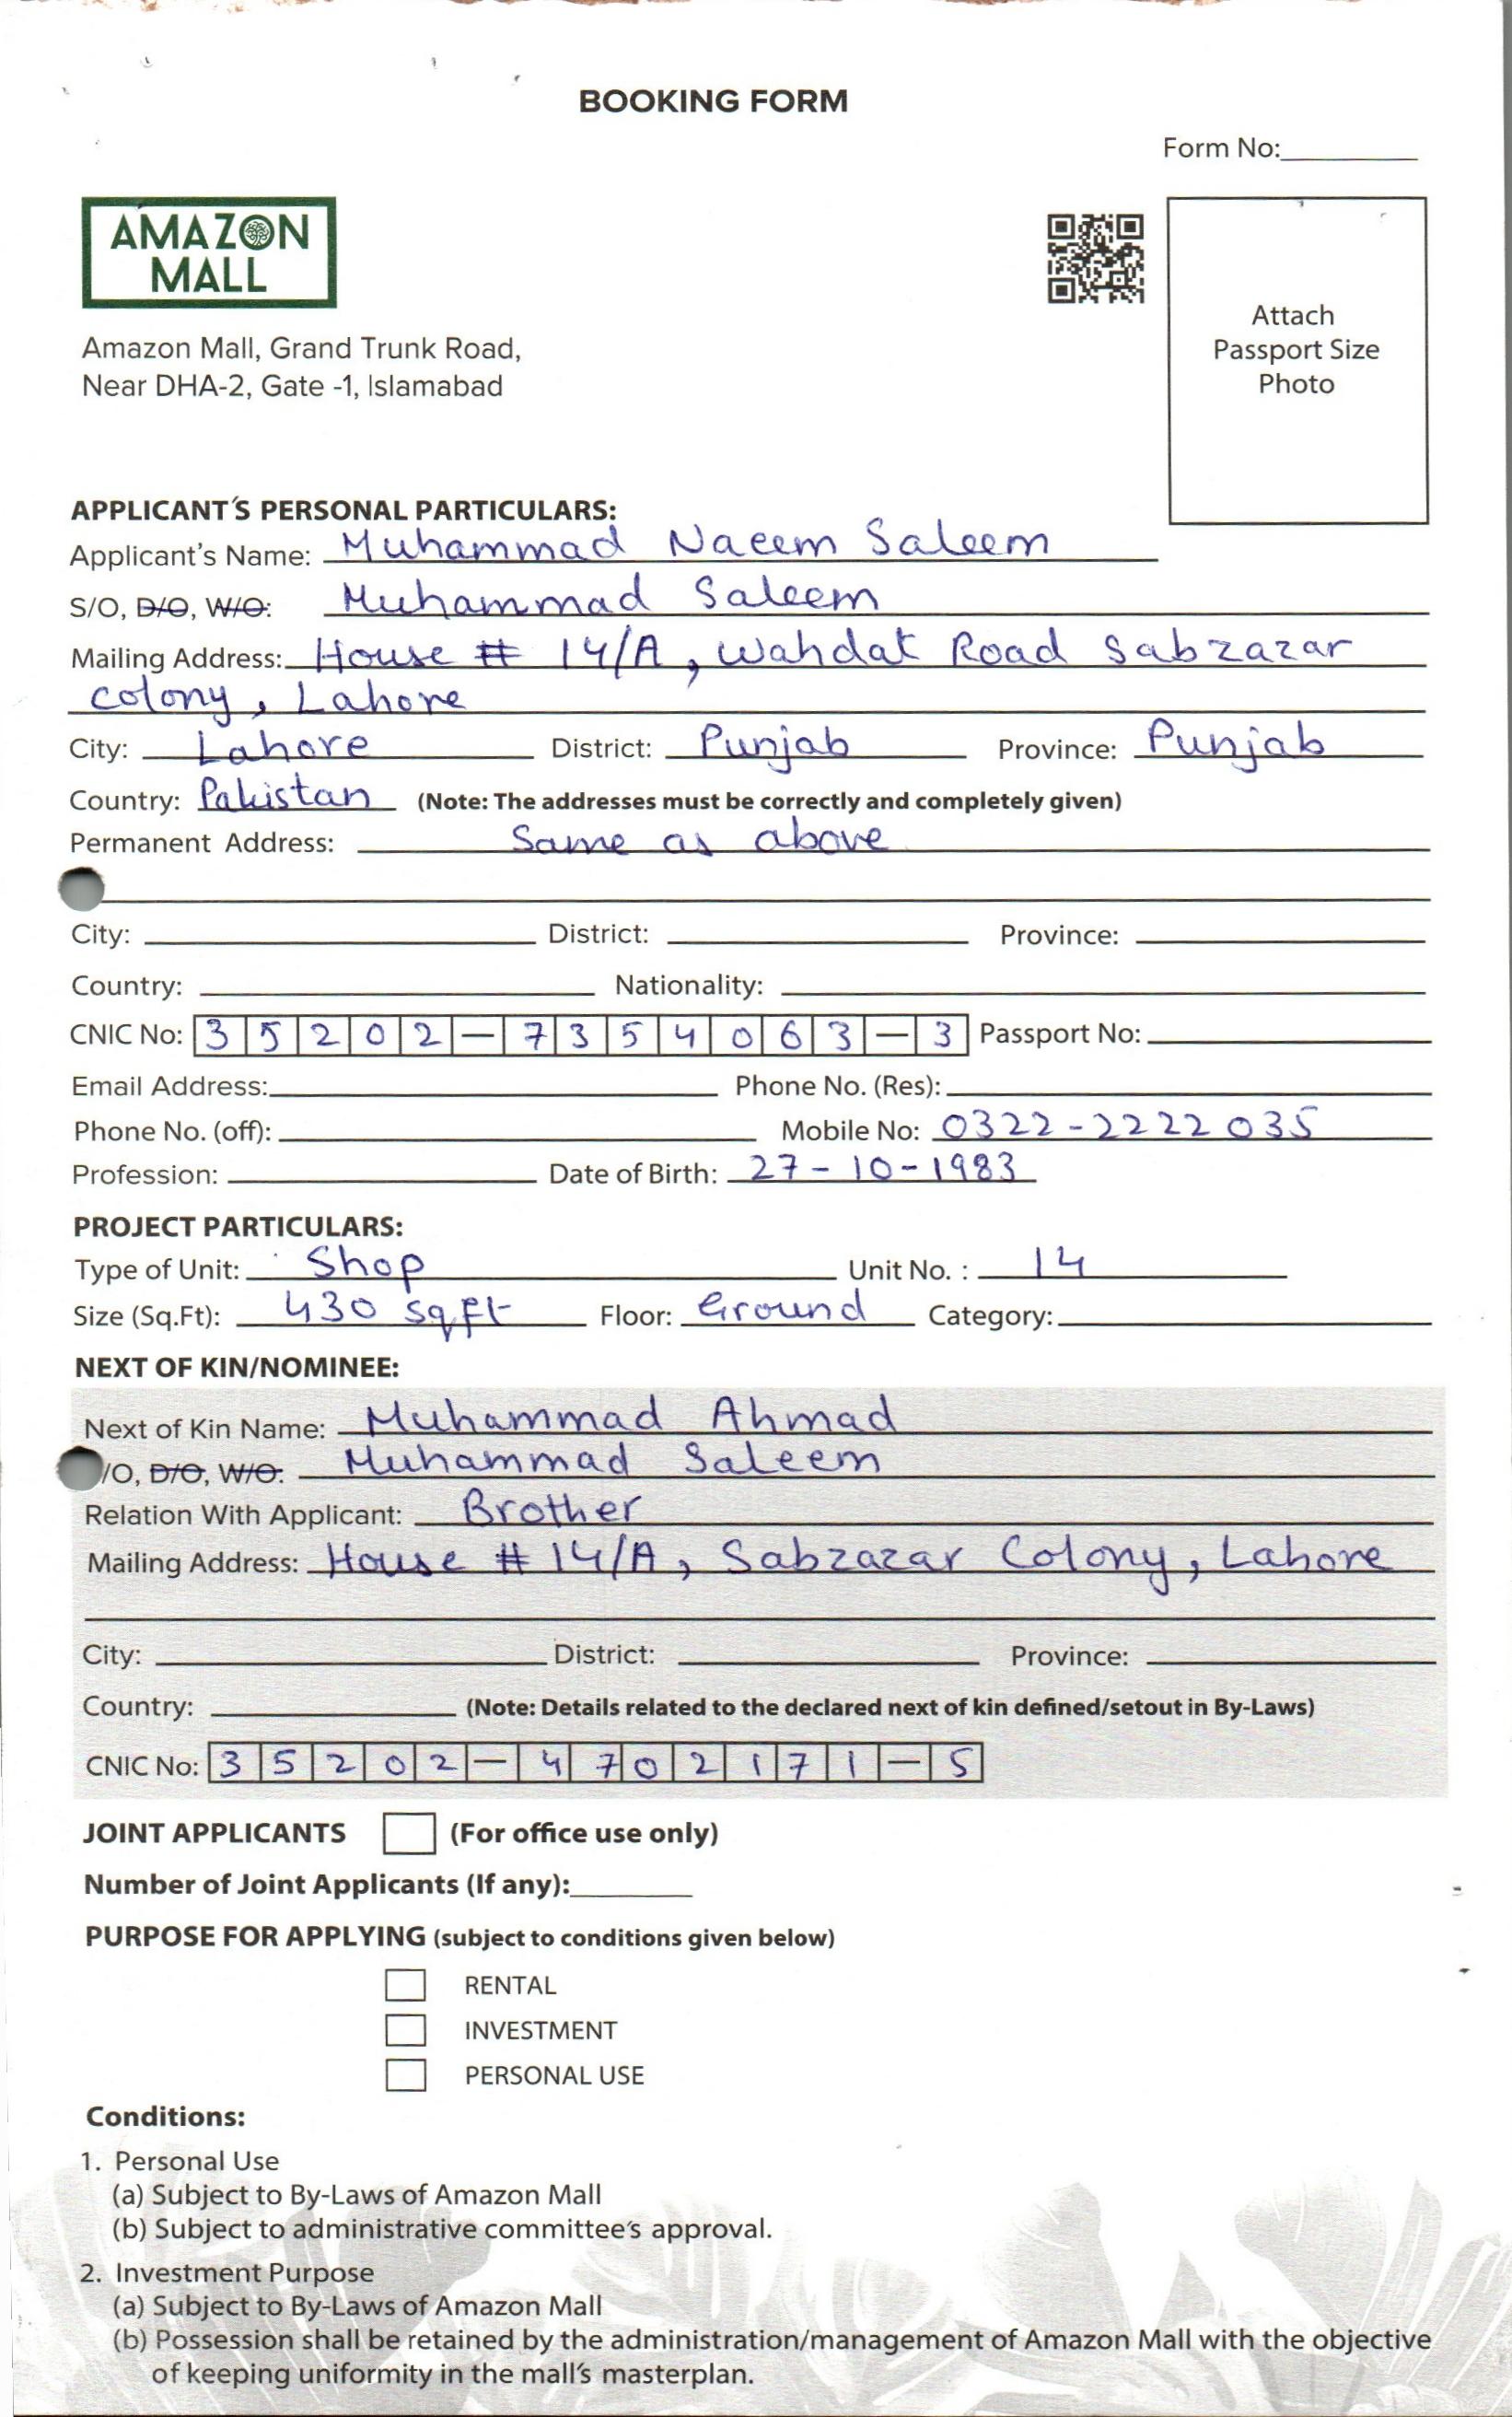 BOOKING FORM
Form No:
AMAZON
MALL
Attach
Passport Size
Photo
Amazon Mall, Grand Trunk Road,
Near DHA-2, Gate -1, Islamabad
APPLICANT'S PERSONAL PARTICULARS:
Applicant's Name: Muhammad Naeem Saleem
S/O, D/O, W/O: Muhammad Saleem
Mailing Address: House # 14/A, Wahdat Road Sabzazar
Colony, Lahore
City: Lahore District: Punjab Province: Punjab
Country: Pakistan (Note: The addresses must be correctly and completely given)
Permanent Address: Same as above
City: District: Province:
Country: Nationality:
CNIC No: 35202-7354063-3 Passport No:
Email Address: Phone No. (Res):
Phone No. (off): Mobile No: 0322-2222035
Profession: Date of Birth: 27-10-1983
PROJECT PARTICULARS:
Type of Unit: Shop Unit No. : 14
Size (Sq.Ft): 430 sqft Floor: Ground Category:
NEXT OF KIN/NOMINEE:
Next of Kin Name: Muhammad Ahmad
/O, D/O, W/O: Muhammad Saleem
Relation With Applicant: Brother
Mailing Address: House # 14/A, Sabzazar Colony, Lahore
City: District: Province:
Country: (Note: Details related to the declared next of kin defined/setout in By-Laws)
CNIC No: 35202-4702171-5
JOINT APPLICANTS (For office use only)
Number of Joint Applicants (If any):
PURPOSE FOR APPLYING (subject to conditions given below)
RENTAL
INVESTMENT
PERSONAL USE
Conditions:
1. Personal Use
(a) Subject to By-Laws of Amazon Mall
(b) Subject to administrative committee's approval.
2. Investment Purpose
(a) Subject to By-Laws of Amazon Mall
(b) Possession shall be retained by the administration/management of Amazon Mall with the objective
of keeping uniformity in the mall's masterplan.